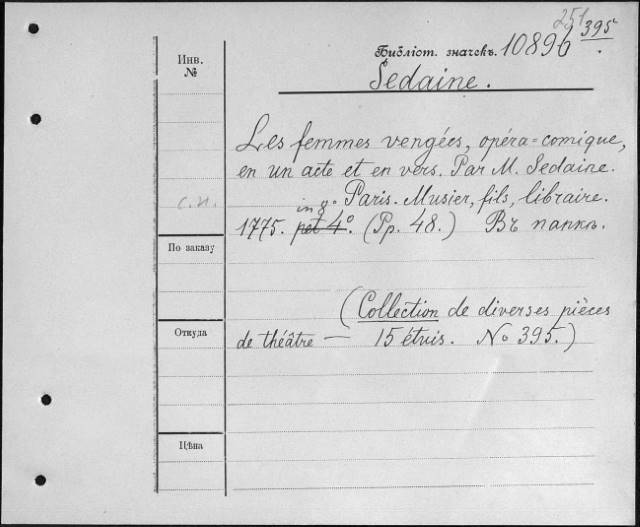 251
395
Библіот. значекъ. 10896
Sedaine.
Инв.
№
Les femmes vengées, opéra=comique,
en un acte et en vers. Par M. Sedaine.
с.н.
Paris. Musier, fils, libraire.
in 8º
1775. pet 4º. (Pp. 48.) Въ папкѣ.
По заказу
(Collection de diverses pièces
Откуда
de théâtre — 15 étuis. No 395.)
Цѣна